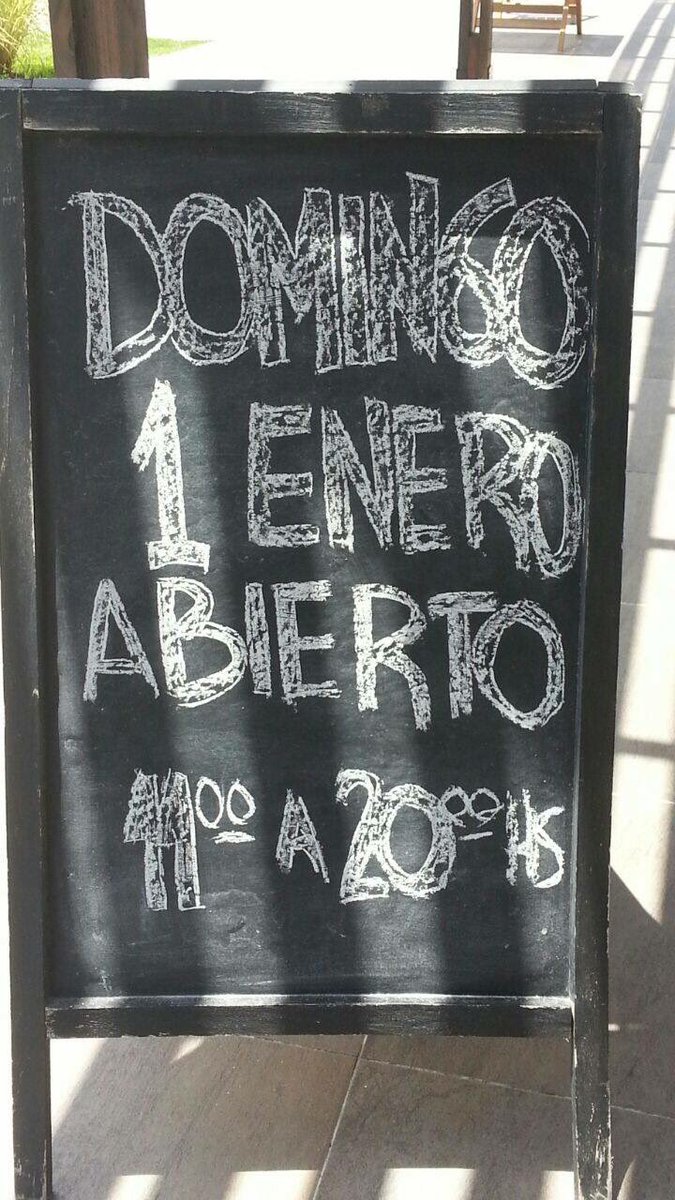 DOMINGO
1 ENERO
ABIERTO
11⁰⁰ A 20⁰⁰ HS